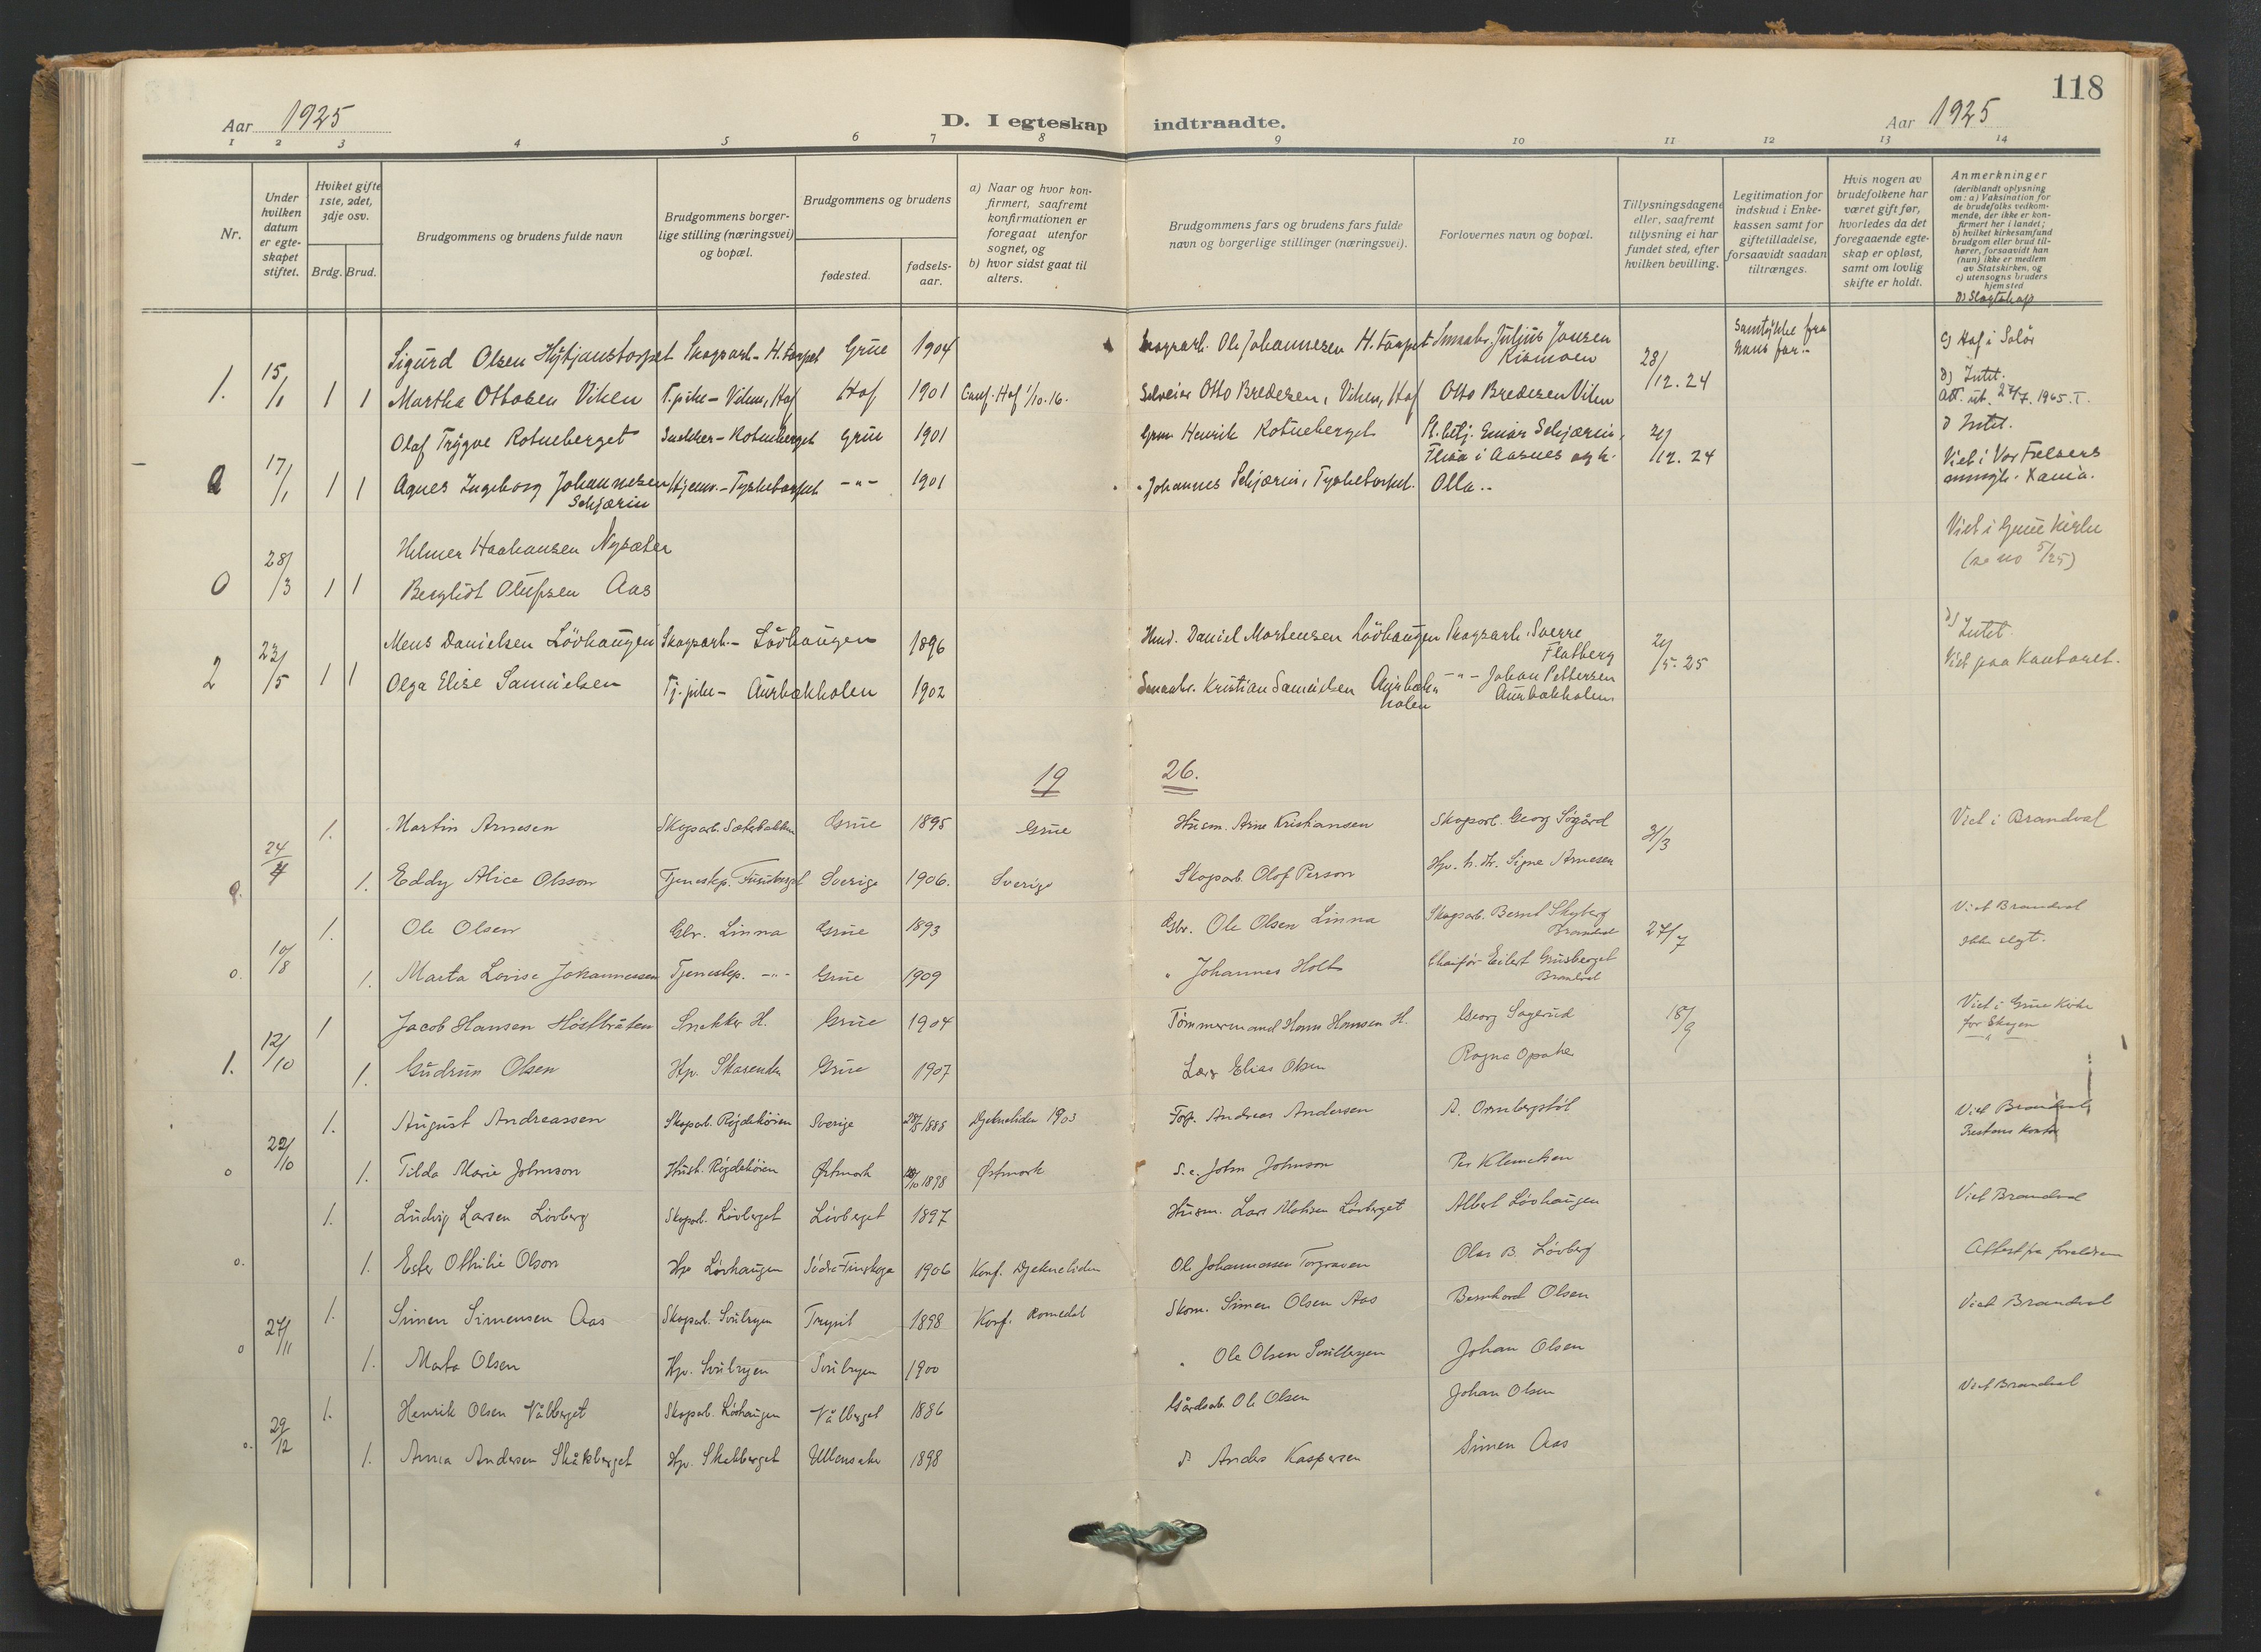 118
Aar 1925
D. I egteskap indtraadte.
Aar 1925
1 2 3 4 5 6 7 8 9 10 11 12 13 14
Nr.
Under hvilken datum er egteskapet stiftet.
Hviket gifte 1ste, 2det, 3dje osv.
Brdg. Brud.
Brudgommens og brudens fulde navn
Brudgommens borgerlige stilling (næringsvei) og bopæl.
Brudgommens og brudens
fødested.
fødselsaar.
a) Naar og hvor konfirmert, saafremt konfirmationen er foregaat utenfor sognet, og
b) hvor sidst gaat til alters.
Brudgommens fars og brudens fars fulde navn og borgerlige stillinger (næringsvei).
Forlovernes navn og bopæl.
Tillysningsdagene eller, saafremt tillysning ei har fundet sted, efter hvilken bevilling.
Legitimation for indskud i Enkekassen samt for giftetilladelse, forsaavidt saadan tiltrænges.
Hvis nogen av brudefolkene har været gift før, hvorledes da det foregaaende egteskap er opløst, samt om lovlig skifte er holdt.
Anmerkninger
(deriblandt oplysning om: a) Vaksination for de brudefolks vedkommende, der ikke er konfirmert her i landet; b) hvilket kirkesamfund brudgom eller brud tilhører, forsaavidt han (hun) ikke er medlem av Statskirken, og c) utensogns bruders hjemsted
D) Slegtskap
1. 15/1 1 1
Sigurd Olsen Hytjanstorpet Skogsarb. - H.torpet Grue 1904 Skogsarb. Ole Johannesen H. torpet Smaabr. Julius Jansen Kismoen 28/12.24 Samtykke fra hans far. - c) Hof i Solør
Martha Ottosen Viken T.pike - Viken, Hof Hof 1901 Conf. Hof 1/10.16. Selveier Otto Bredesen, Viken, Hof Otto Bredesen Viken d) Intet. Att. ut. 27/7. 1965. T.
17/1 1 1
Olaf Trygve Rotneberget Snekker - Rotneberget Grue 1901 Grm. Henrik Rotneberget St. betj. Einar Schjærin, Flisa i Aasnes og k. 21/12.24 d Intet.
Agnes Ingeborg Johannesen Schjærin Hjemv. - Tysketorpet -"- 1901 " Johannes Schjærin, Tysketorpet. Olla.. Viet i Vor Frelsers menigh. Kania.
0 28/3 1 1
Helmer Haakansen Nysæter Viet i Grue Kirke
Bergliot Olufsen Aas (se no 5/25)
2 23/5 1 1
Mens Danielsen Lövhaugen Skogsarb. - Lövhaugen 1896 Husm. Daniel Mortensen Lövhaugen Skogsarb. Sverre Flatberg 21/5.25 d) Intet.
Olga Elise Samuelsen Tj. pike - Aurbækholen 1902 Smaabr. Kristian Samuelsen Aurbækholen -"- Johan Pettersen Aurbækholen Viet paa Kontoret.
19 26.
0. 24/4
1. Martin Arnesen Skogsarb. Sæterbakken Grue 1895 Grue Husm. Arne Kristiansen Skogsarb. Georg Sögård 31/3 Viet i Brandval
1. Eddy Alice Olsson Tjenestep. Furuberget Sverige 1906. Sverige Skogsarb. Olof Person Hpv. h. Fr. Signe Arnesen
0. 10/8
1. Ole Olsen Gbr. Linna Grue 1893 Gbr. Ole Olsen Linna Skogsarb. Bernt Skyberg Brandval 27/7 Viet Brandval
1. Marta Lovise Johannessen Tjenestep. -"- Grue 1909 " Johannes Holt Chaufør Eilert Grusberget Brandval Ikke slegt.
1. 12/10
1 Jacob Hansen Höstbråten Snekker H. Grue 1904 Tömmermand Hans Hansen H. Georg Sagerud 18/9 Viet i Grue Kirke for Skogen
1. Gudrun Olsen Hpv. Skasenden Grue 1907 Lars Elias Olsen Ragna Opaker
0 22/10
1. August Andreassen Skogsarb. Rögdehöien Sverige 28/5 1888 Djekneliden 1903 Torp. Andreas Andersen A. Ornbergstöl Viet Brandval Prestens Kontor
1. Tilda Marie Johnson Hush. Rögdehöien Østmark 10/10 1898 Østmark S.e. John Johnson Per Klemetsen
0.
1. Ludvig Larsen Lövberg Skogsarb. Lövberget Lövberget 1897 Husm. Lars Matisen Lövberget Albert Lövhaugen Viet Brandval
1. Ester Othilie Olson Hpv Lövhaugen Södra Finskoga 1906 Konf. Djekneliden Ole Johannessen Torgraven Olav B. Lövberg Attest fra foreldrene
0 27/11
1. Simen Simensen Aas Skogsarb. Svullryen Trysil 1898 Konf. Romedal Skom. Simen Olsen Aas Bernhard Olsen Viet Brandval
1. Marta Olsen Hpv. Svullryen Svullryen 1900 " Ole Olsen Svullryen Johan Olsen
0. 29/12
1. Henrik Olsen Vålberget Skogsarb. Lövhaugen Vålberget 1886 Gårdsarb. Ole Olsen Johan Olsen Viet Brandval
1. Anna Andersen Skåkberget Hpv. Skakberget Ullensaker 1898 Anders Kaspersen Simen Aas